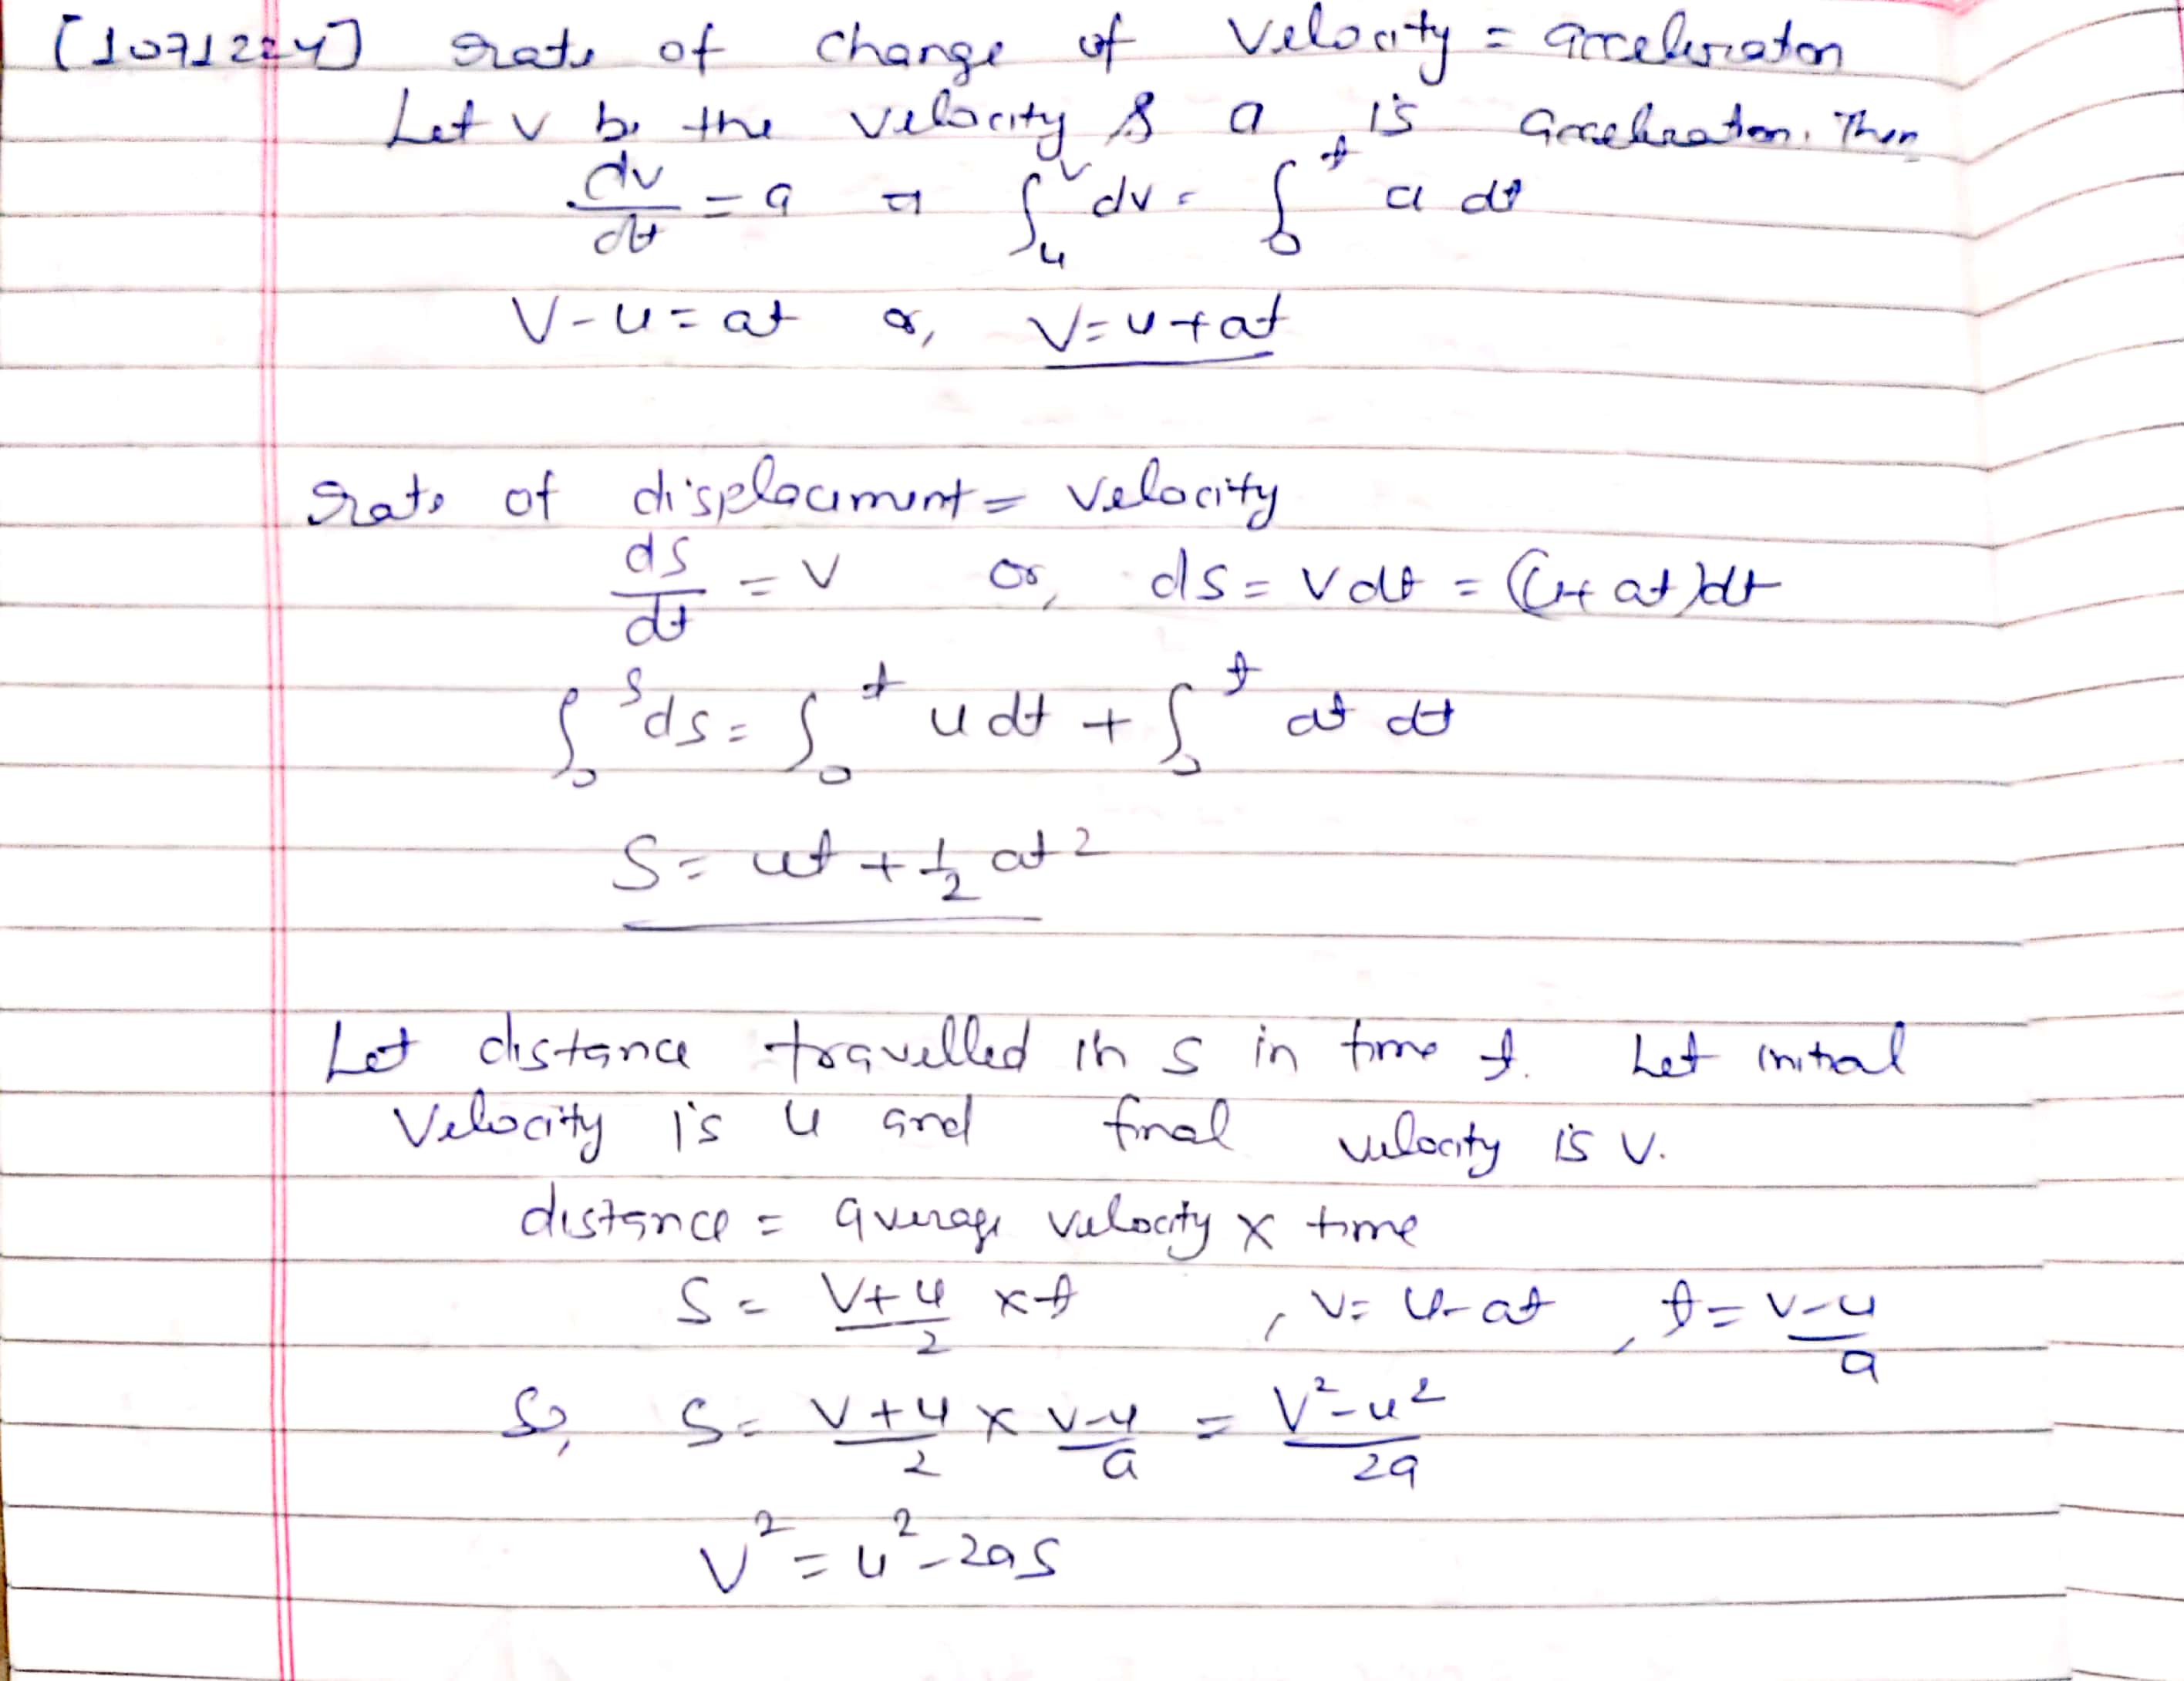 [1071224] rate of change of velocity = acceleration
Let v be the velocity & a is acceleration. Then
dv/dt = a or ∫_u^v dv = ∫_0^t a dt
V-u = at or, V=u+at
rate of displacement = velocity
ds/dt = v or, ds = v dt = (u+at)dt
∫_0^s ds = ∫_0^t u dt + ∫_0^t at dt
S = ut + 1/2 at²
Let distance travelled in s in time t. Let initial
Velocity is u and final velocity is v.
distance = average velocity x time
S = (V+u)/2 x t , V = u-at , t = (v-u)/a
So, S = (V+u)/2 x (v-u)/a = (V²-u²)/2a
V² = u² - 2as